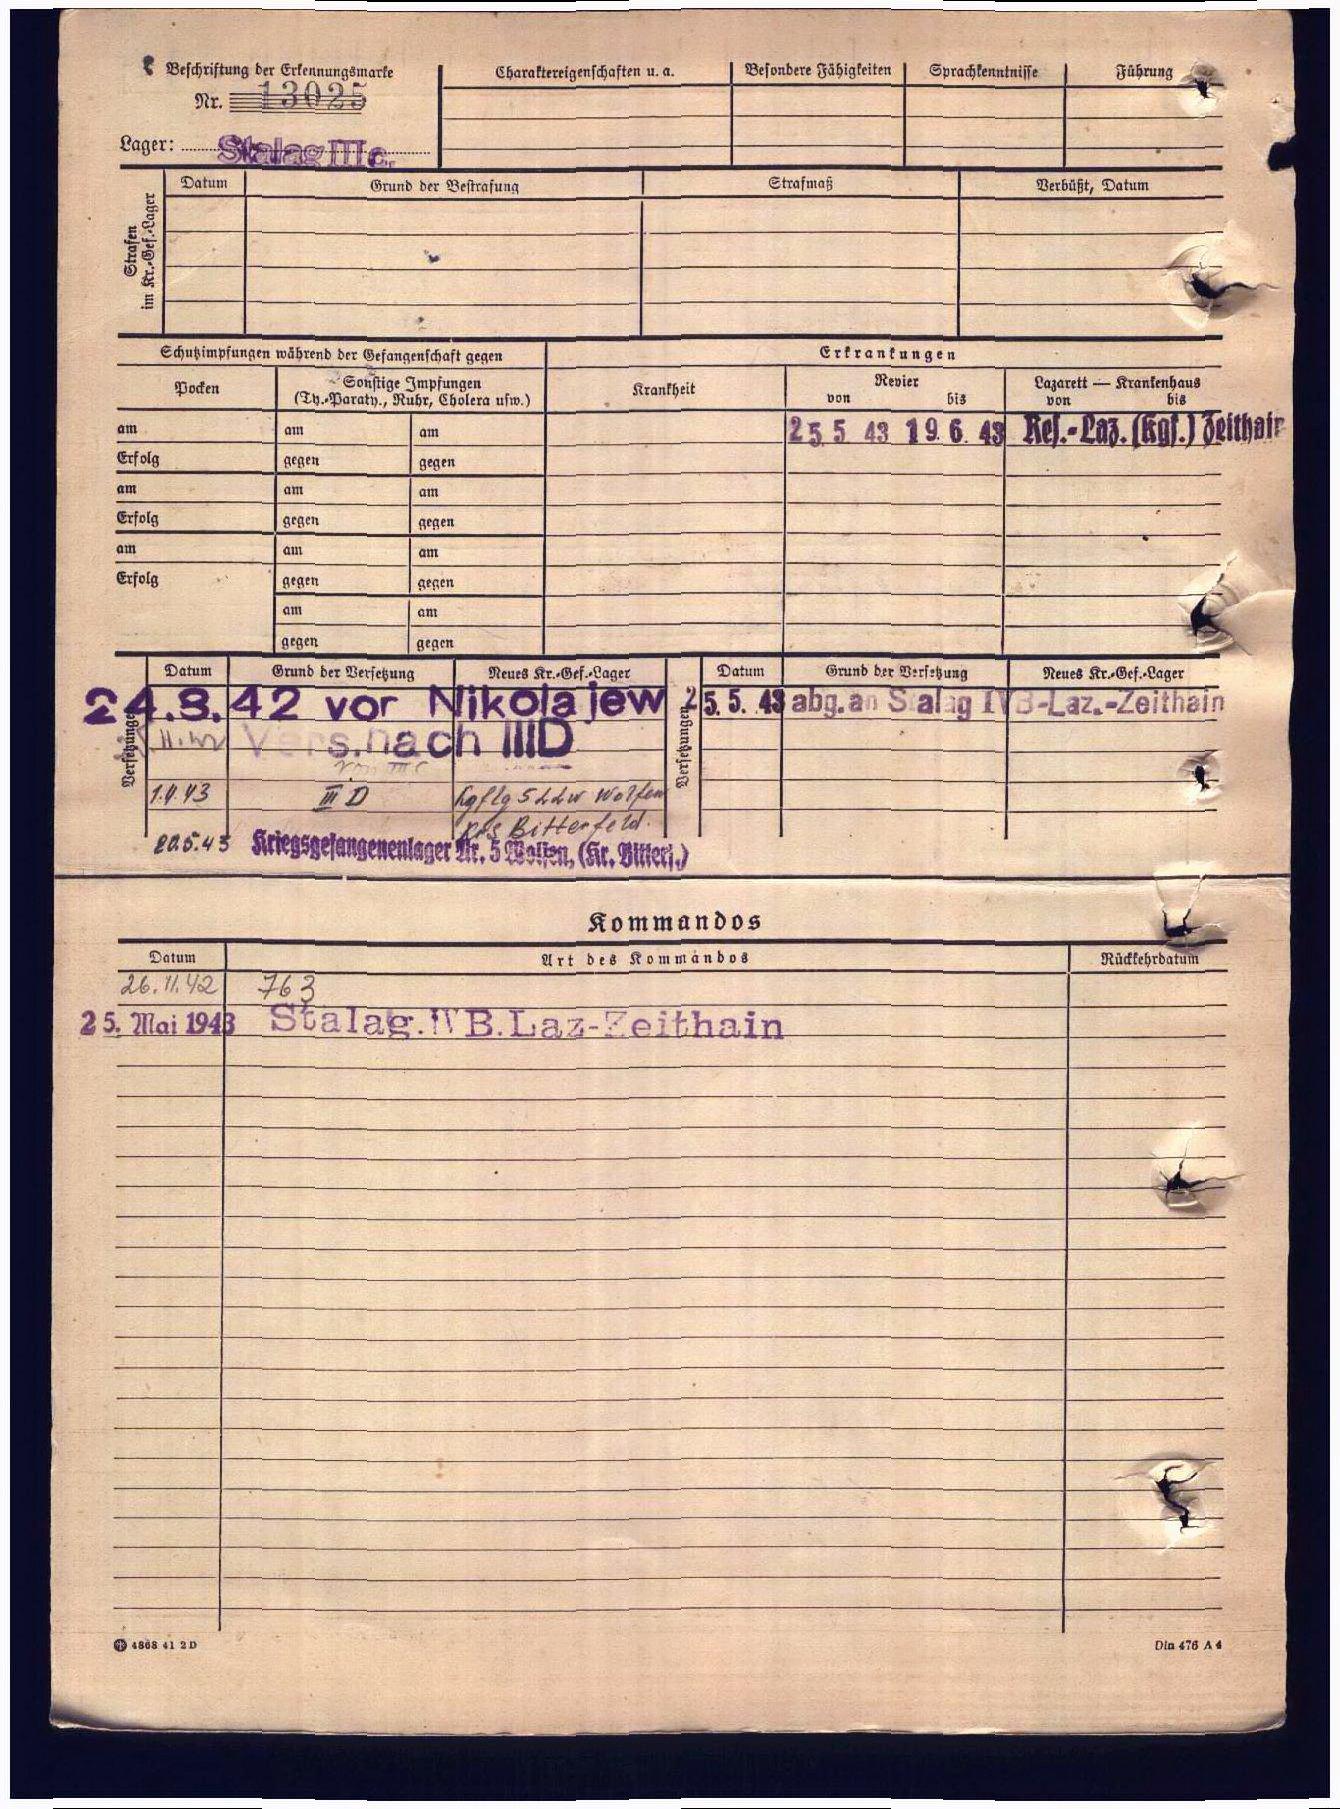 Beschriftung der Erkennungsmarke
Nr. 13025
Lager: Stalag III c.
Charaktereigenschaften u. a.
Besondere Fähigkeiten
Sprachkenntnisse
Führung
Strafen im Kr.-Gef.-Lager
Datum
Grund der Bestrafung
Strafmaß
Verbüßt, Datum
Schutzimpfungen während der Gefangenschaft gegen
Erkrankungen
Pocken
Sonstige Impfungen
(Ty.-Paraty., Ruhr, Cholera usw.)
Krankheit
Revier
von bis
Lazarett — Krankenhaus
von bis
am am am
25 5 43 19 6. 43 Res.-Laz. (Kgf.) Zeithain
Erfolg gegen gegen
am am am
Erfolg gegen gegen
am am am
Erfolg gegen gegen
am am
gegen gegen
Versetzungen
Datum
Grund der Versetzung
Neues Kr.-Gef.-Lager
24.8.42 vor Nikolajew
Vers. nach IIID
1.4.43 III D Kgflg 5 Wolfen
Krs Bitterfeld.
20.5.43 Kriegsgefangenenlager Nr. 5 Wolfen, (Kr. Bitterf.)
Versetzungen
Datum
Grund der Versetzung
Neues Kr.-Gef.-Lager
25.5.43 abg. an Stalag IV B-Laz.-Zeithain
Kommandos
Datum
Art des Kommandos
Rückkehrdatum
26.11.42 763
25. Mai 1943 Stalag. IV B. Laz-Zeithain
4868 41 2 D
Din 476 A 4